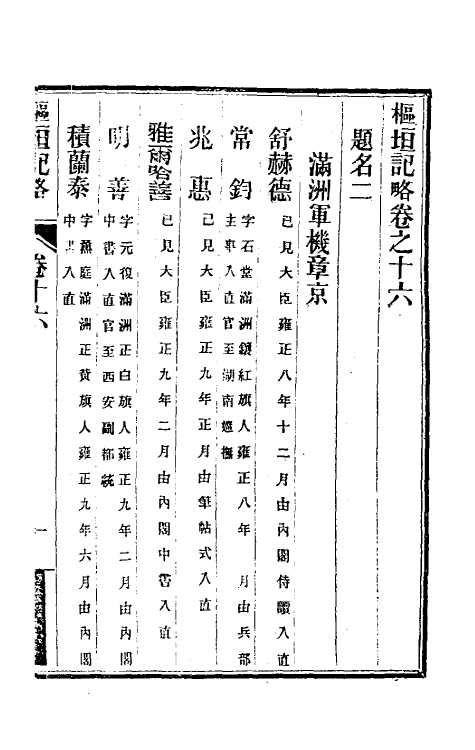 樞垣記略卷之十六
題名二
滿洲軍機章京
舒赫德 已見大臣雍正八年十二月由內閣侍讀入直
常鈞 字石堂滿洲鑲紅旗人雍正八年 月由兵部
主事入直官至湖南巡撫
兆惠 已見大臣雍正九年正月由筆帖式入直
雅爾哈善 已見大臣雍正九年二月由內閣中書入直
明善 字元復滿洲正白旗人雍正九年二月由內閣
中書入直官至西安副都統
積蘭泰 字 庭滿洲正黃旗人雍正九年六月由內閣
中書入直
樞垣記略 卷十六 一